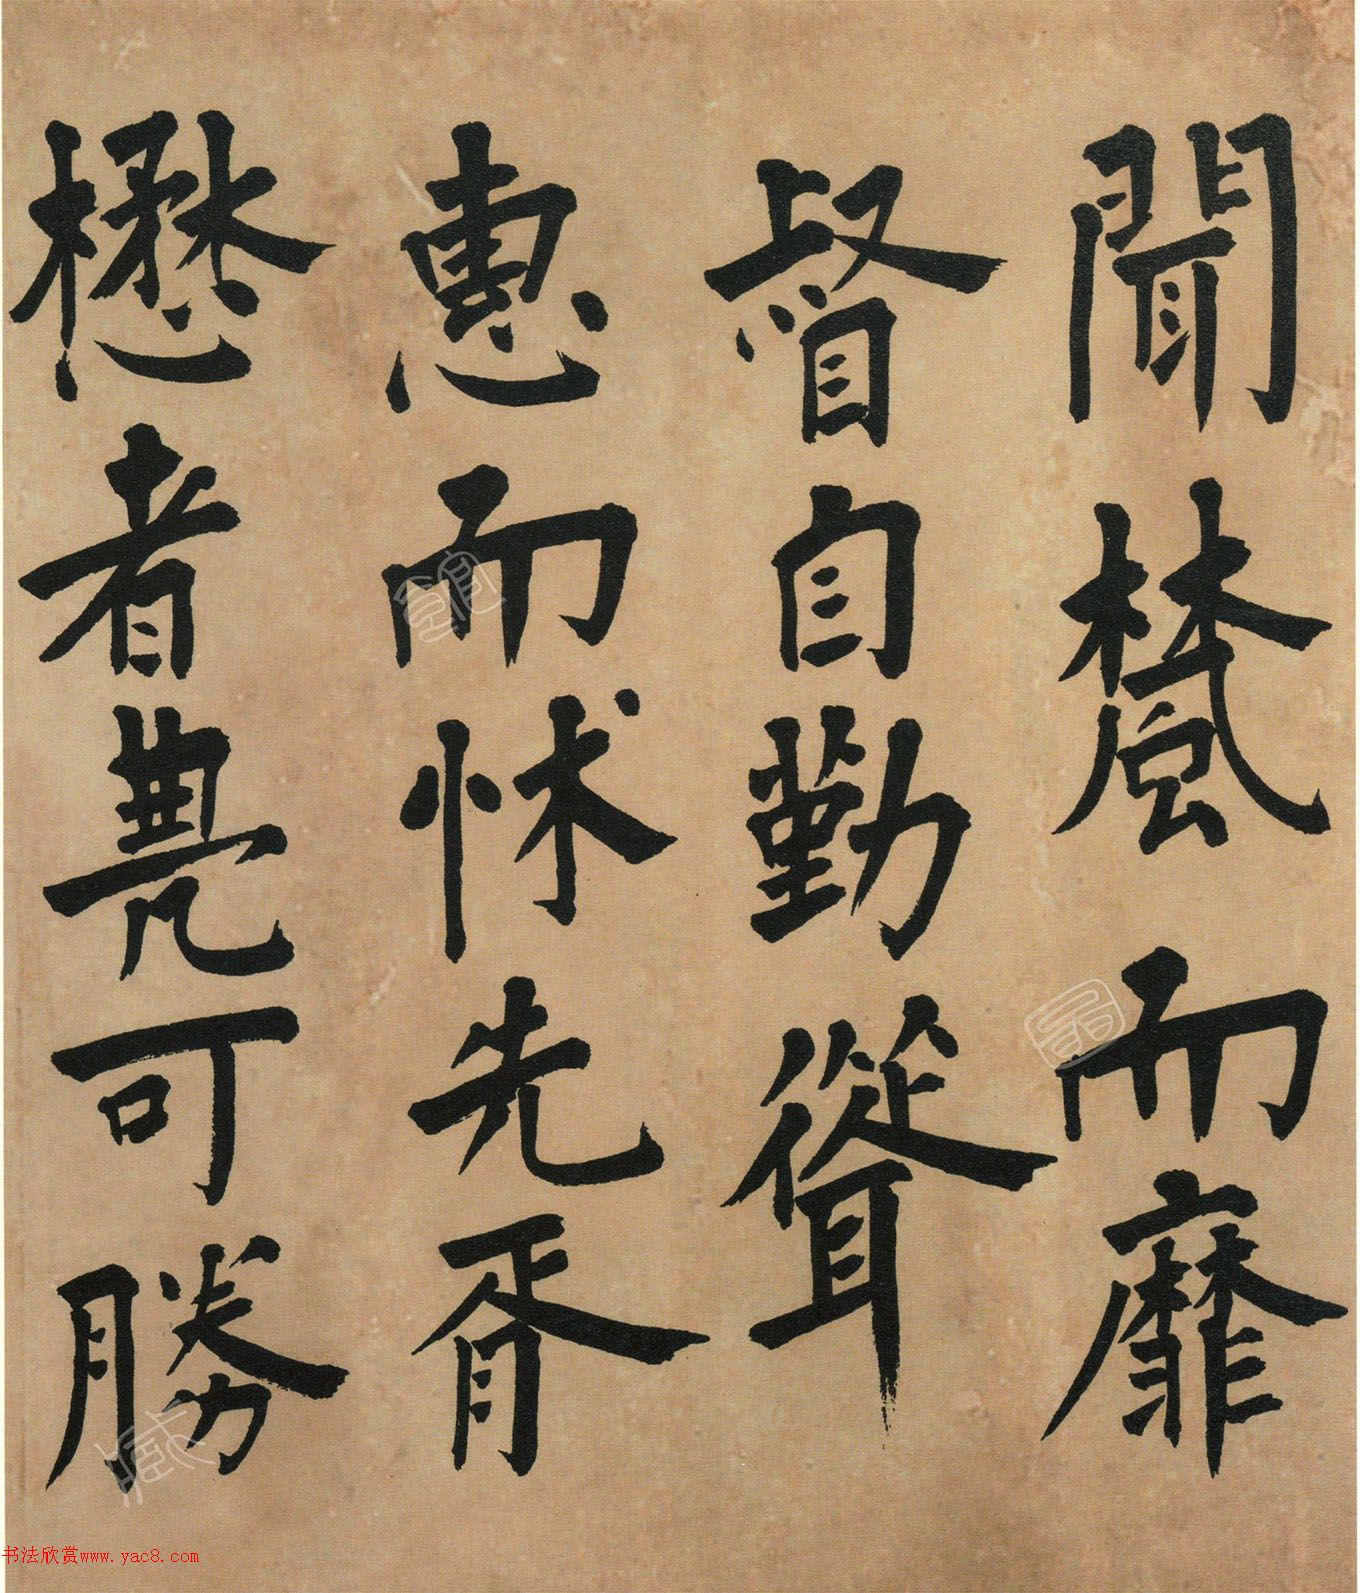 聞檒而靡
督自勤聳
惠而怵先胥
懋者可勝
书法欣赏www.yac8.com